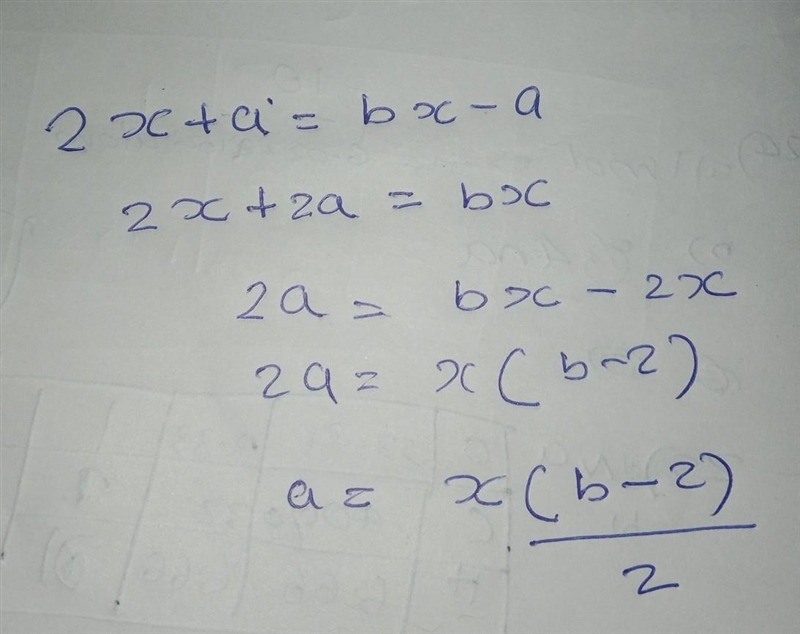 2x+a = bx-a
2x+2a = bx
2a = bx-2x
2a = x(b-2)
a = x(b-2)/2